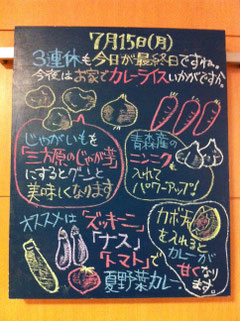 7月15日(月)
3連休も今日が最終日ですね。
今夜はお家でカレーライスいかがですか。
じゃがいもを
「三方原のじゃが芋」
にするとグーンと
美味しくなります
青森産の
ニンニクを
入れて
パワーアップ!
オススメは「ズッキーニ」
「ナス」
「トマト」で
夏野菜カレー。
カボチャ
を入れると
カレーが
甘くなり
ます。